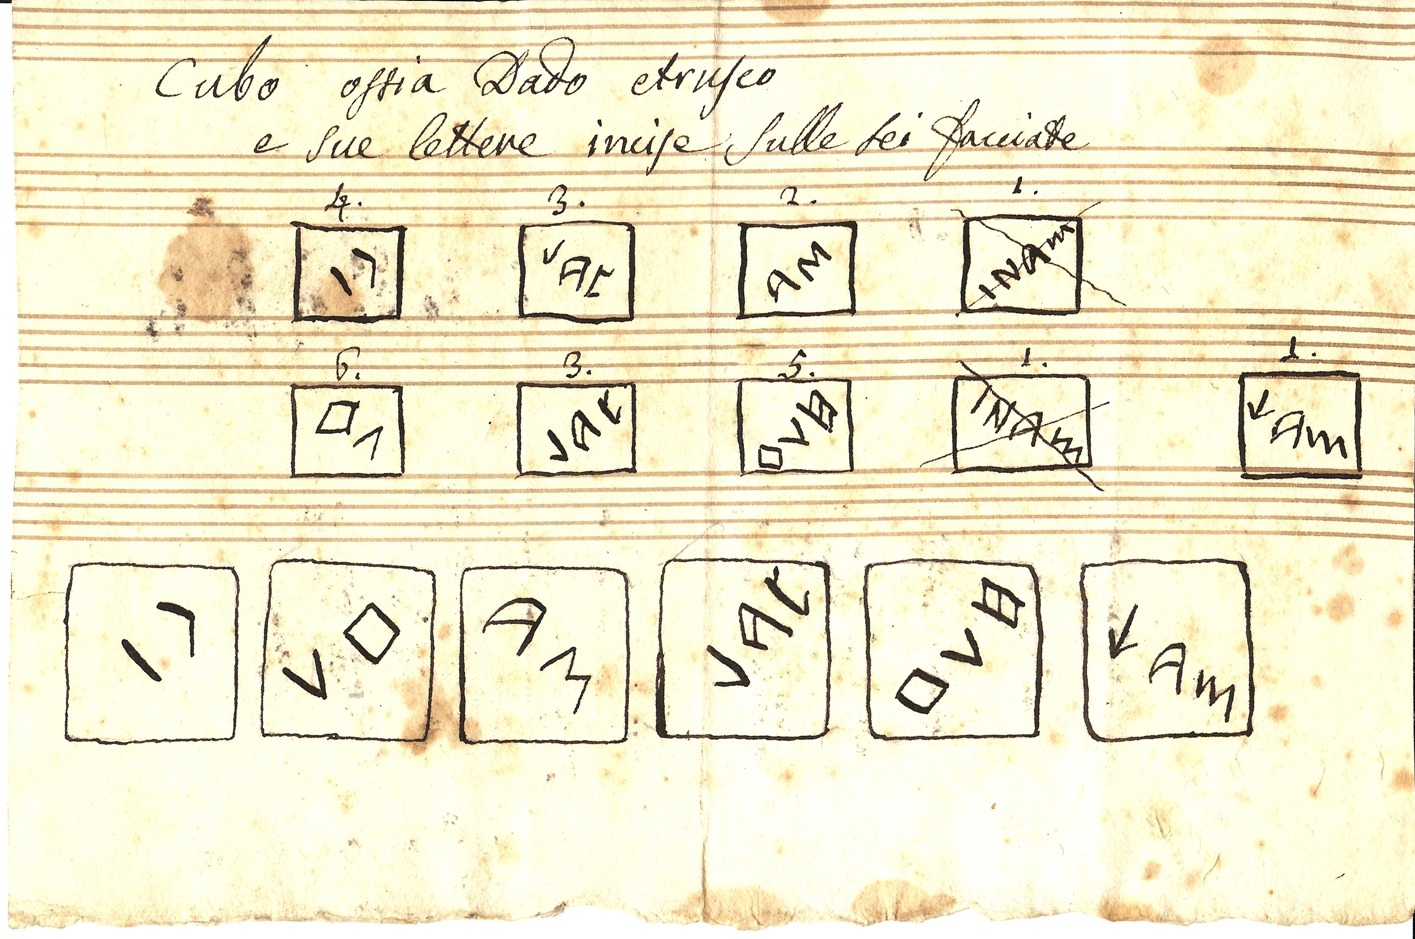 Cubo ossia Dado etrusco
e sue lettere incise sulle sei facciate
4. 3. 2. 1.
VAC AM INAM
6. 3. 5. 1. 1.
VAC OVB INAM
VO AM VAC OVB